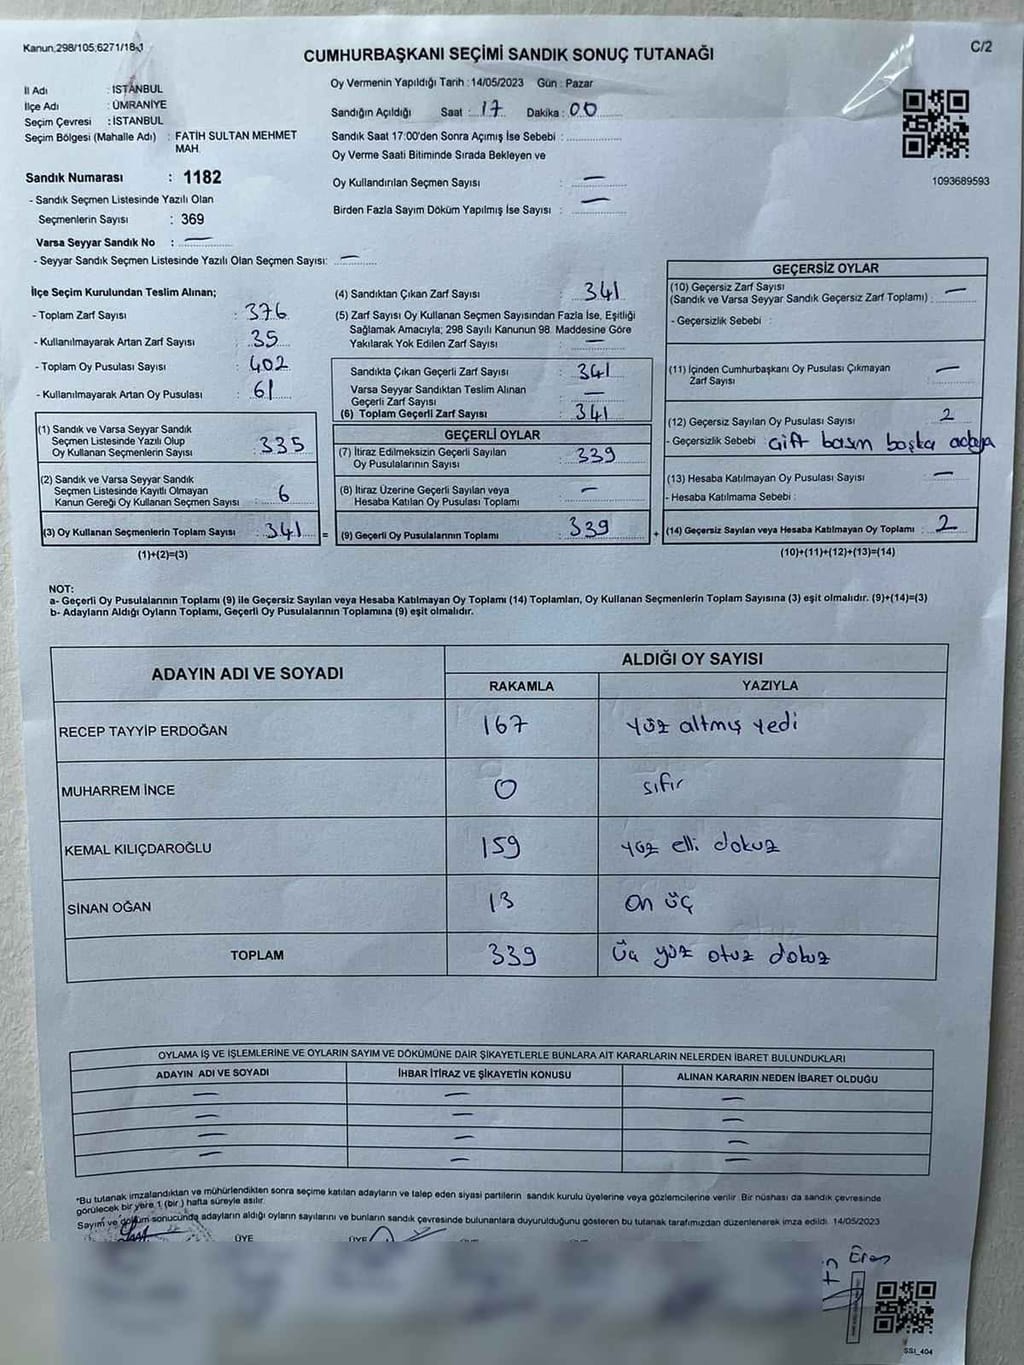 Kanun,298/105,6271/18-1
CUMHURBAŞKANI SEÇİMİ SANDIK SONUÇ TUTANAĞI
C/2
İl Adı : İSTANBUL
İlçe Adı : ÜMRANİYE
Seçim Çevresi : İSTANBUL
Seçim Bölgesi (Mahalle Adı) : FATİH SULTAN MEHMET
MAH.
Sandık Numarası : 1182
- Sandık Seçmen Listesinde Yazılı Olan
Seçmenlerin Sayısı : 369
Varsa Seyyar Sandık No : —
- Seyyar Sandık Seçmen Listesinde Yazılı Olan Seçmen Sayısı: —
Oy Vermenin Yapıldığı Tarih : 14/05/2023 Gün : Pazar
Sandığın Açıldığı Saat : 17 Dakika : 00
Sandık Saat 17:00'den Sonra Açımış İse Sebebi :
Oy Verme Saati Bitiminde Sırada Bekleyen ve
Oy Kullandırılan Seçmen Sayısı : —
Birden Fazla Sayım Döküm Yapılmış İse Sayısı : —
1093689593
İlçe Seçim Kurulundan Teslim Alınan;
- Toplam Zarf Sayısı : 376
- Kullanılmayarak Artan Zarf Sayısı : 35
- Toplam Oy Pusulası Sayısı : 402
- Kullanılmayarak Artan Oy Pusulası : 61
(1) Sandık ve Varsa Seyyar Sandık
Seçmen Listesinde Yazılı Olup
Oy Kullanan Seçmenlerin Sayısı : 335
(2) Sandık ve Varsa Seyyar Sandık
Seçmen Listesinde Kayıtlı Olmayan
Kanun Gereği Oy Kullanan Seçmen Sayısı : 6
(3) Oy Kullanan Seçmenlerin Toplam Sayısı : 341
(1)+(2)=(3)
=
(4) Sandıktan Çıkan Zarf Sayısı : 341
(5) Zarf Sayısı Oy Kullanan Seçmen Sayısından Fazla İse, Eşitliği
Sağlamak Amacıyla; 298 Sayılı Kanunun 98. Maddesine Göre
Yakılarak Yok Edilen Zarf Sayısı : —
Sandıkta Çıkan Geçerli Zarf Sayısı : 341
Varsa Seyyar Sandıktan Teslim Alınan
Geçerli Zarf Sayısı : —
(6) Toplam Geçerli Zarf Sayısı : 341
GEÇERLİ OYLAR
(7) İtiraz Edilmeksizin Geçerli Sayılan
Oy Pusulalarının Sayısı : 339
(8) İtiraz Üzerine Geçerli Sayılan veya
Hesaba Katılan Oy Pusulası Toplamı : —
(9) Geçerli Oy Pusulalarının Toplamı : 339
+
GEÇERSİZ OYLAR
(10) Geçersiz Zarf Sayısı
(Sandık ve Varsa Seyyar Sandık Geçersiz Zarf Toplamı) : —
- Geçersizlik Sebebi :
(11) İçinden Cumhurbaşkanı Oy Pusulası Çıkmayan
Zarf Sayısı : —
(12) Geçersiz Sayılan Oy Pusulası Sayısı : 2
- Geçersizlik Sebebi : Çift basım başka adaya
(13) Hesaba Katılmayan Oy Pusulası Sayısı : —
- Hesaba Katılmama Sebebi :
(14) Geçersiz Sayılan veya Hesaba Katılmayan Oy Toplamı : 2
(10)+(11)+(12)+(13)=(14)
NOT:
a- Geçerli Oy Pusulalarının Toplamı (9) ile Geçersiz Sayılan veya Hesaba Katılmayan Oy Toplamı (14) Toplamları, Oy Kullanan Seçmenlerin Toplam Sayısına (3) eşit olmalıdır. (9)+(14)=(3)
b- Adayların Aldığı Oyların Toplamı, Geçerli Oy Pusulalarının Toplamına (9) eşit olmalıdır.
ADAYIN ADI VE SOYADI ALDIĞI OY SAYISI
RAKAMLA YAZIYLA
RECEP TAYYİP ERDOĞAN 167 yüz altmış yedi
MUHARREM İNCE 0 sıfır
KEMAL KILIÇDAROĞLU 159 yüz elli dokuz
SİNAN OĞAN 13 on üç
TOPLAM 339 Üç yüz otuz dokuz
OYLAMA İŞ VE İŞLEMLERİNE VE OYLARIN SAYIM VE DÖKÜMÜNE DAİR ŞİKAYETLERLE BUNLARA AİT KARARLARIN NELERDEN İBARET BULUNDUKLARI
ADAYIN ADI VE SOYADI İHBAR İTİRAZ VE ŞİKAYETİN KONUSU ALINAN KARARIN NEDEN İBARET OLDUĞU
— — —
— — —
— — —
— — —
*Bu tutanak imzalandıktan ve mühürlendikten sonra seçime katılan adayların ve talep eden siyasi partilerin sandık kurulu üyelerine veya gözlemcilerine verilir. Bir nüshası da sandık çevresinde
görülecek bir yere 1 (bir) hafta süreyle asılır.
Sayım ve döküm sonucunda adayların aldığı oyların sayılarını ve bunların sandık çevresinde bulunanlara duyurulduğunu gösteren bu tutanak tarafımızdan düzenlenerek imza edildi. 14/05/2023
ÜYE ÜYE
Eren
SSI_404